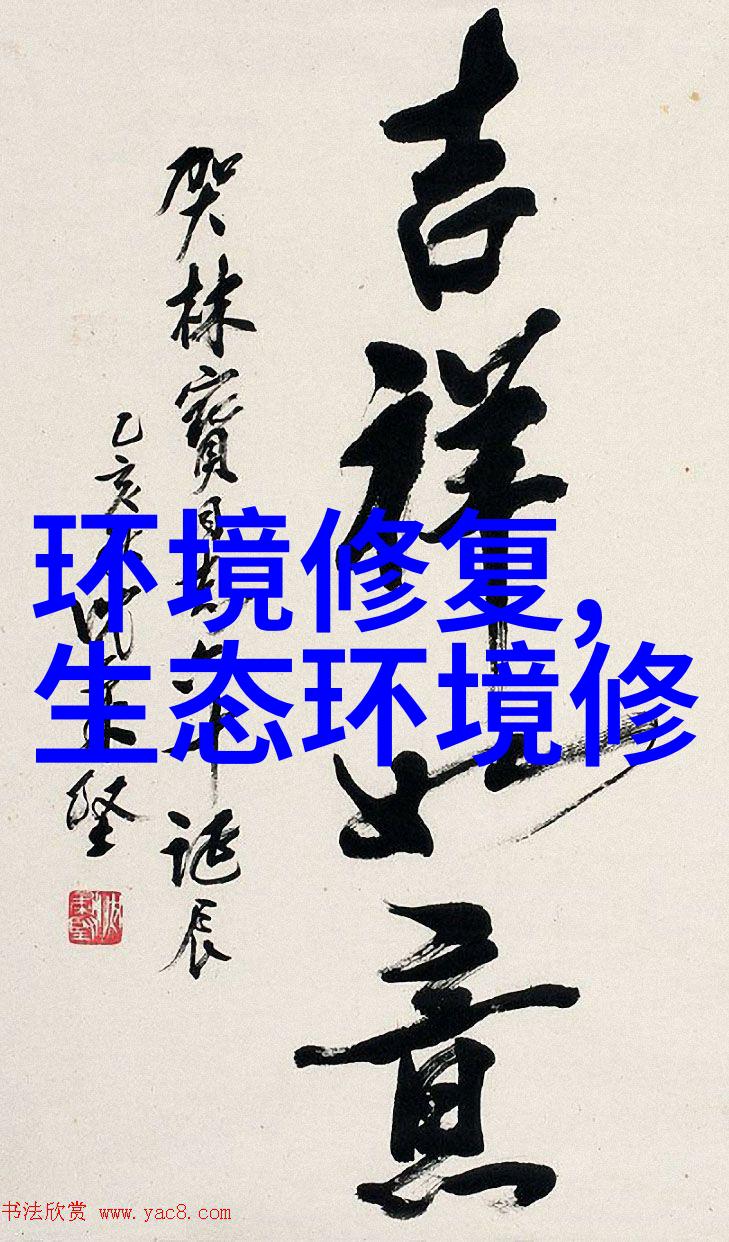 吉祥如意
贺林寶年诞辰
乙亥坚
环境修复,
生态环境修
书法欣赏 www.yac8.com